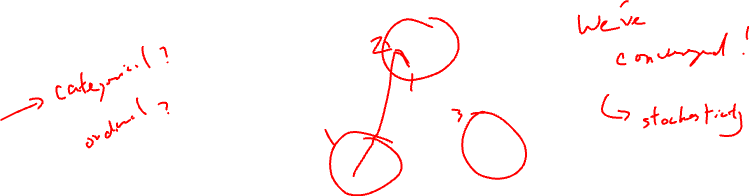 categorical?
ordinal?
2
1
3
We've
converged!
↳ stochasticly